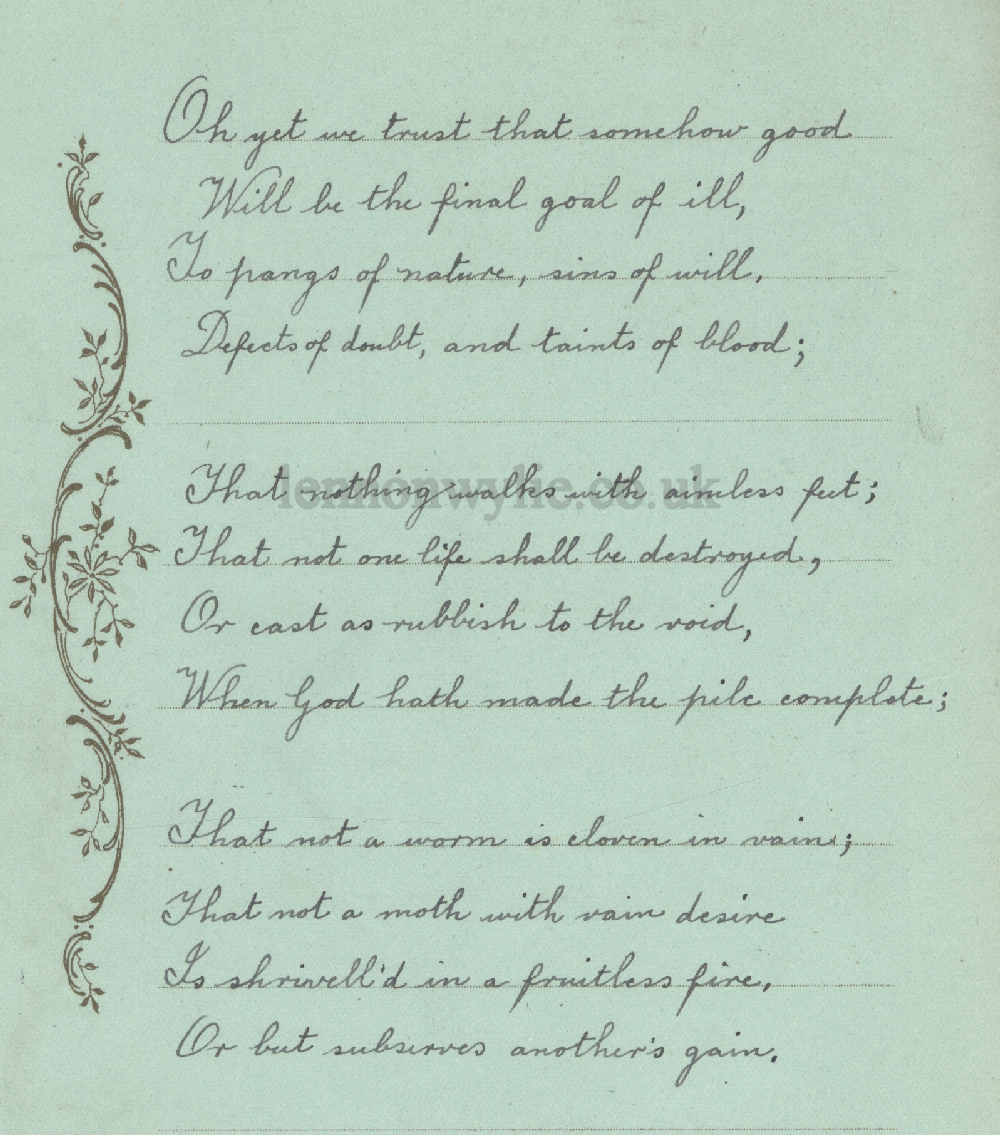 Oh yet we trust that somehow good
Will be the final goal of ill,
To pangs of nature, sins of will,
Defects of doubt, and taints of blood;
lennonwylie.co.uk
That nothing walks with aimless feet;
That not one life shall be destroyed,
Or cast as rubbish to the void,
When God hath made the pile complete;
That not a worm is cloven in vain;
That not a moth with vain desire
Is shrivell'd in a fruitless fire,
Or but subserves another's gain.